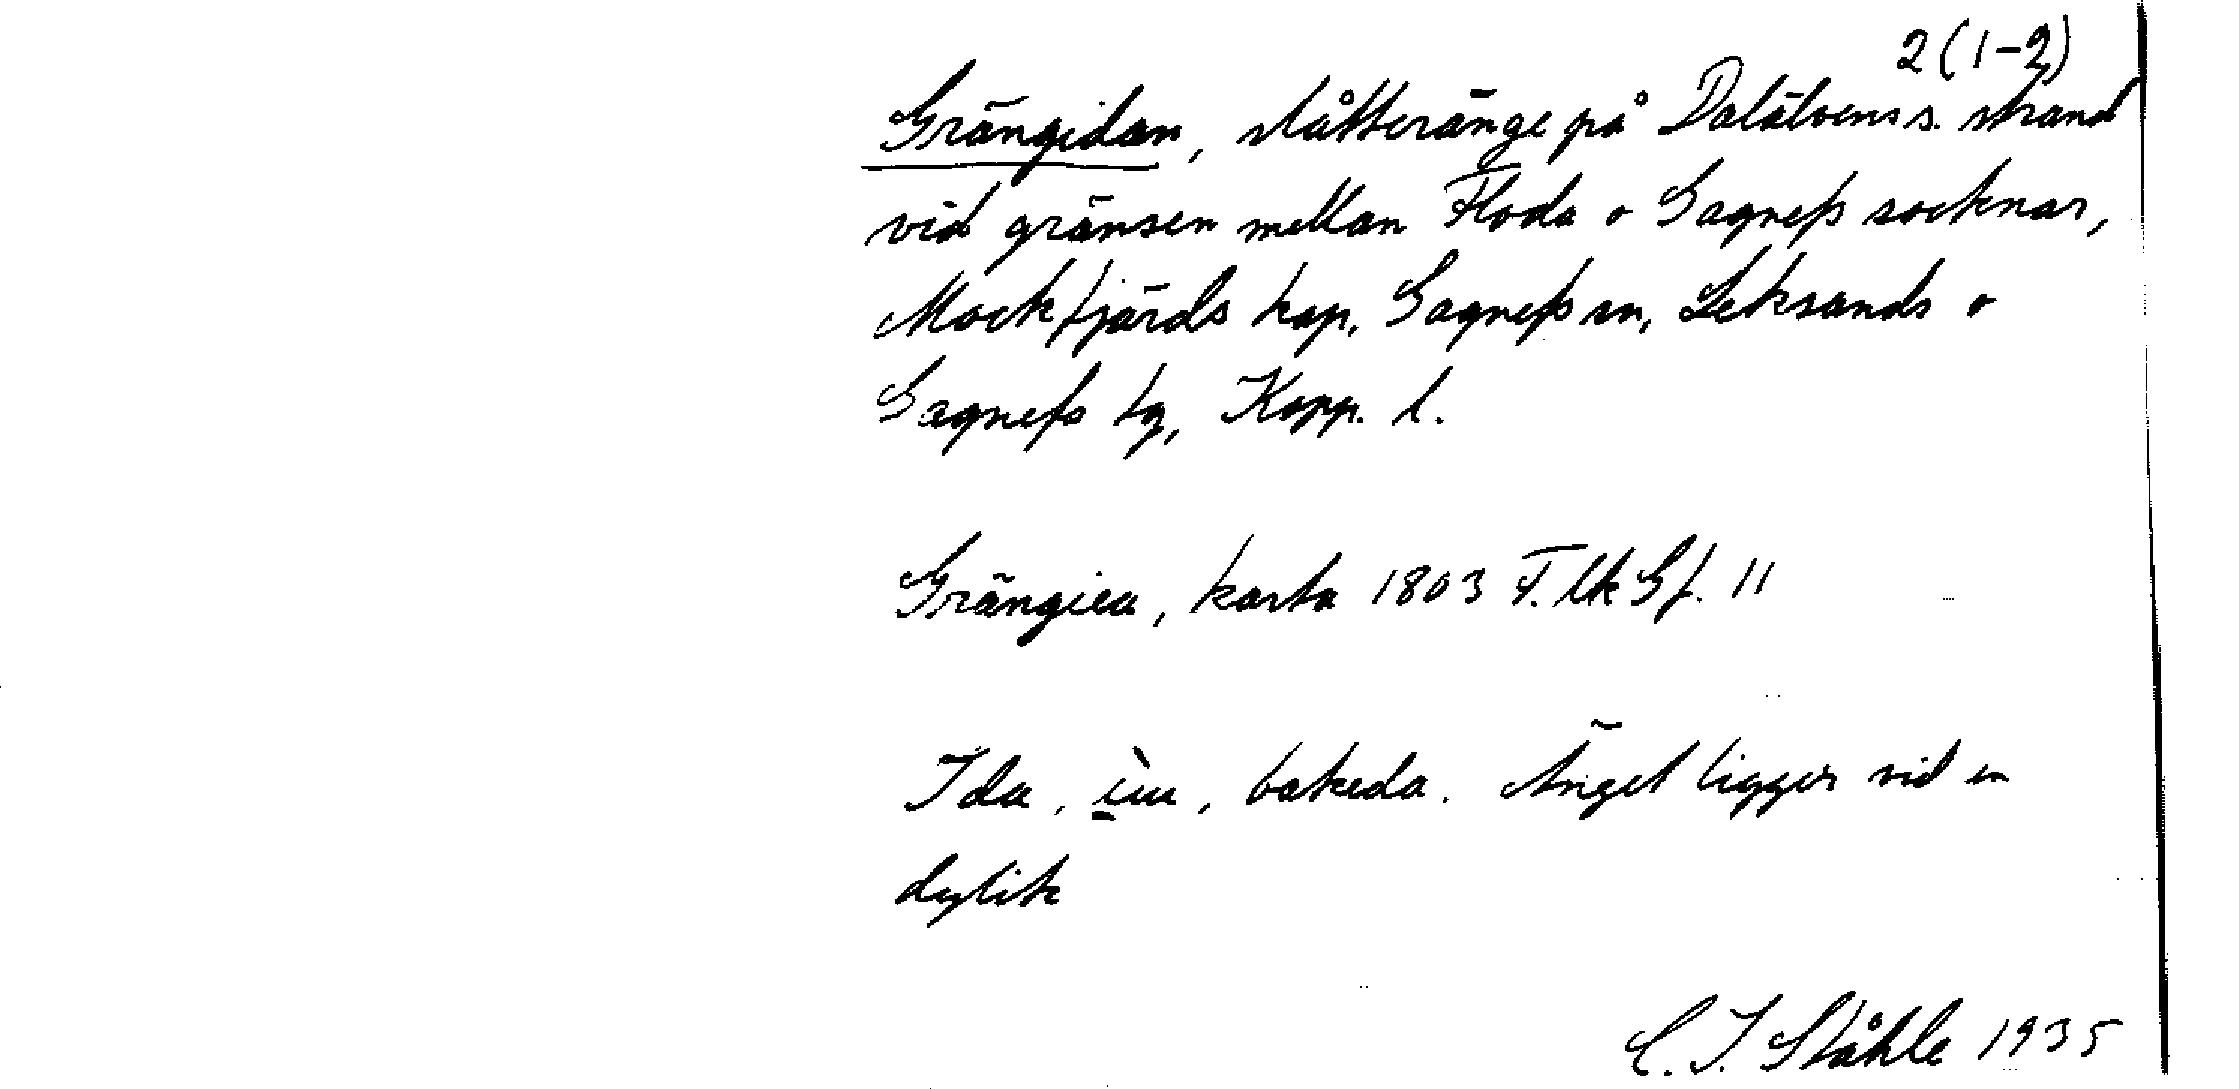 2 (1-2)
Grängidan, slåtteränge på Dalälvens s. strand
vid gränsen mellan Floda o Gagnefs socknar,
Mockfjärds kap, Gagnefs sn, Leksands o
Gagnefs tg, Kopp. l.
Grängiea, karta 1803 F. lk Gf. 11
Ida, bakeda. Änget ligger vid en
dylik
C. I. Ståhle 1935